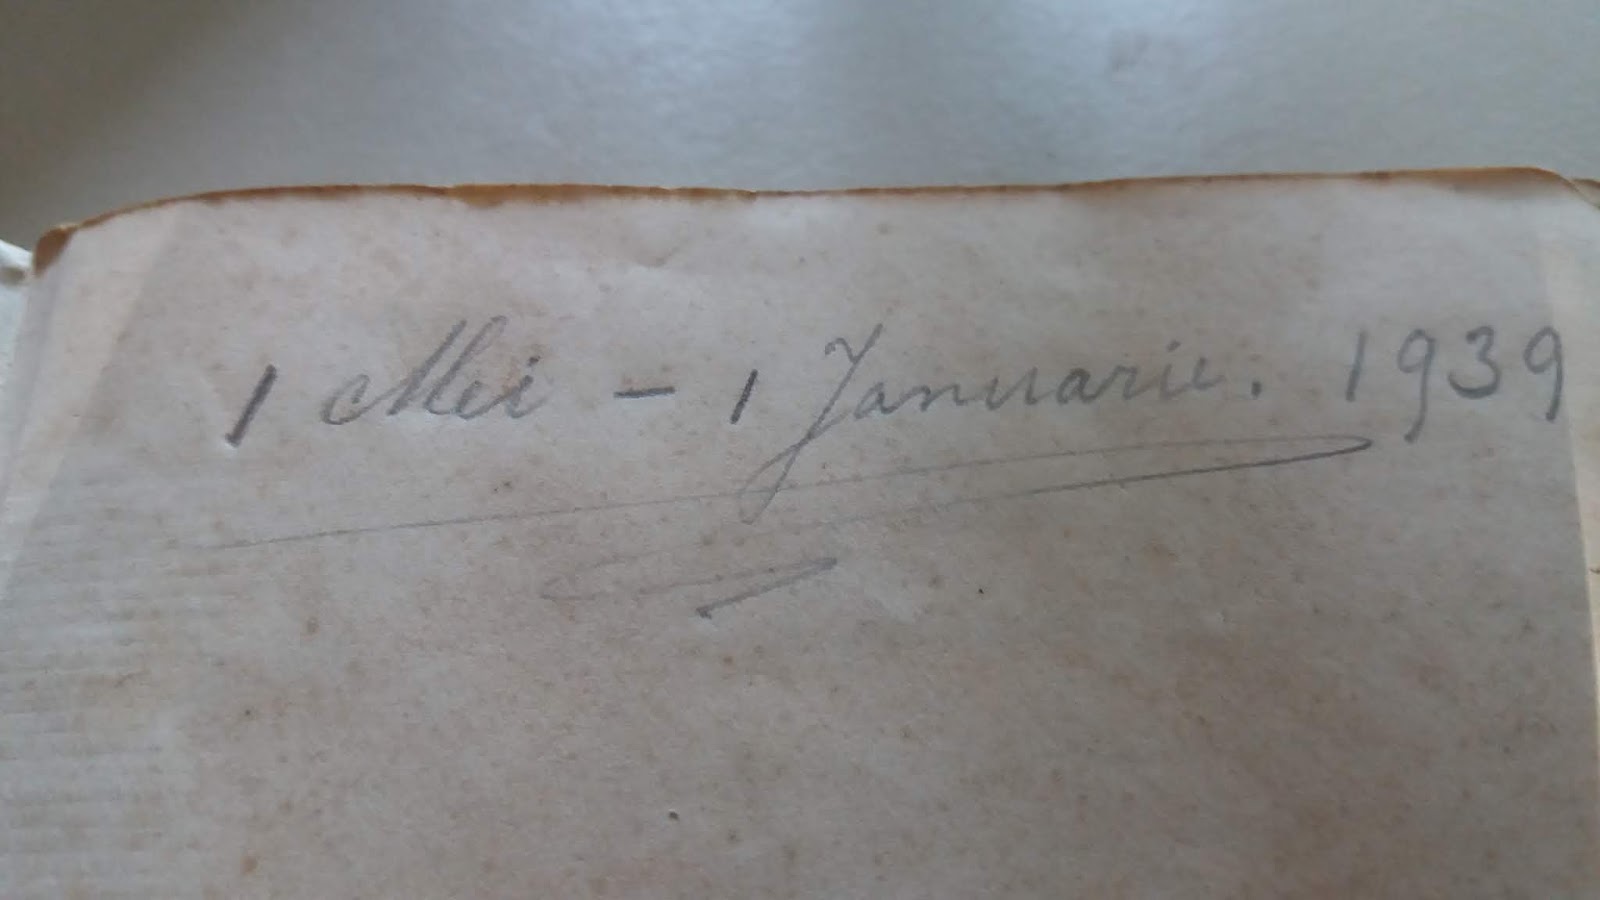 1 Mei – 1 Januarie. 1939